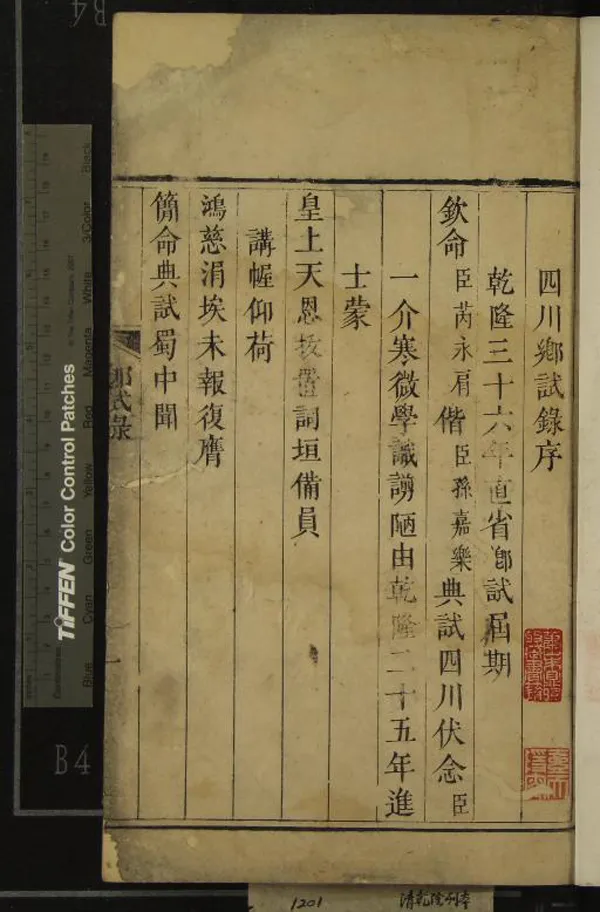 四川鄉試錄序
乾隆三十六年直省鄉試屆期
欽命臣芮永肩偕臣孫嘉樂典試四川伏念臣
一介寒微學識譾陋由乾隆二十五年進
士蒙
皇上天恩拔置詞垣備員
講幄仰荷
鴻慈涓埃未報復膺
簡命典試蜀中聞
鄉試錄
一
TIFFEN Color Control Patches
Blue
Cyan
Green
Yellow
Red
Magenta
White
3/Color
Black
B4
B4
1201
清乾隆刊本